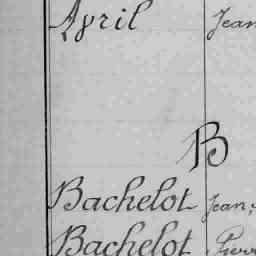 Avril Jean
B
Bachelot Jean,
Bachelot Pierr